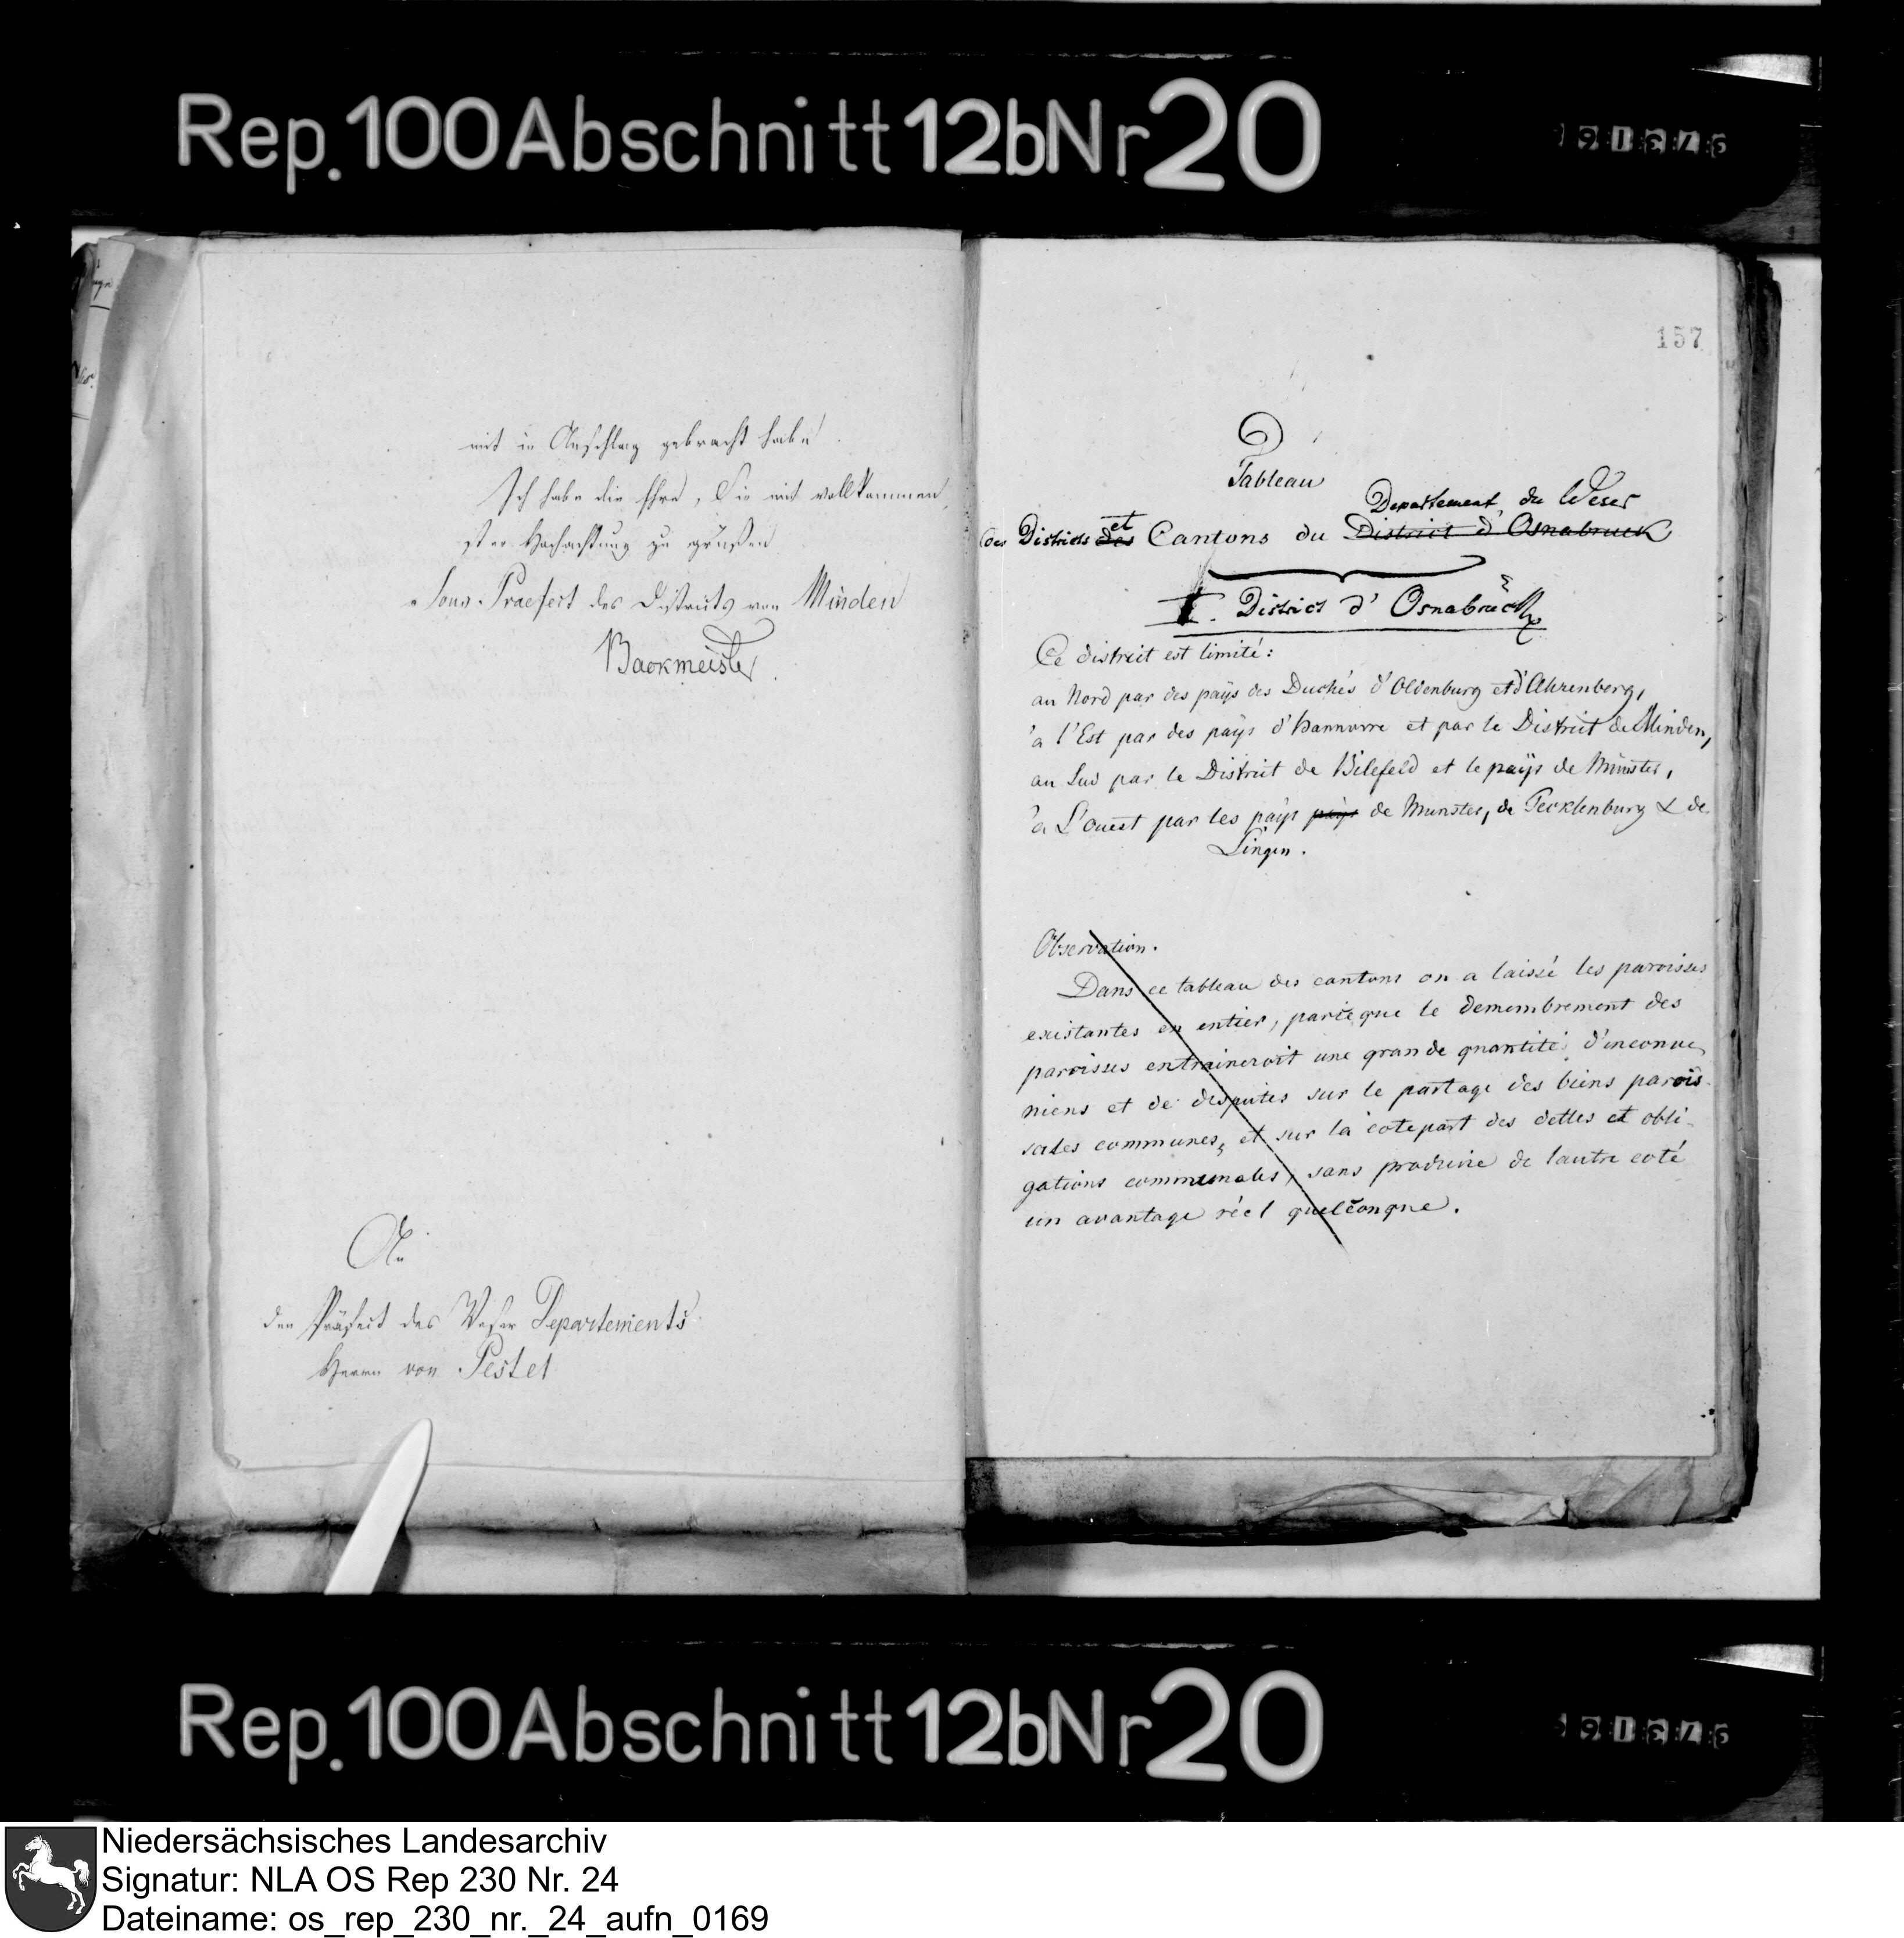 Rep. 100 Abschnitt 12b Nr 20
mit in Anschlag gebracht habe.
Ich habe die Ehre, Sie mit vollkommen
ster Hochachtung zu grüßen
Sous-Praefect des Districts von Minden
Backmeister
An
den Präfect des Weser Departements
Herrn von Pestel
157
Tableau
Departement du Weser
des Districts des et Cantons du District d'Osnabruck
I. District d'Osnabrück
Ce district est limité:
au Nord par des païs des Duchés d'Oldenburg et d'Ahrenberg,
à l'Est par des païs d'Hannovre et par le District de Minden,
au Sud par le District de Bilefeld et le païs de Münster,
à L'ouest par les païs païs de Munster, de Tecklenburg & de
Lingen.
Observation.
Dans ce tableau des cantons on a laissé les paroisses
existantes en entier, parceque le demembrement des
paroisses entraineroit une grande quantité d'inconve
niens et de desputes sur le partage des biens parois
sales communes, et sur la cotepart des dettes et obli-
gations communales, sans produire de l'autre coté
un avantage réel quelconque.
Rep. 100 Abschnitt 12b Nr 20
Niedersächsisches Landesarchiv
Signatur: NLA OS Rep 230 Nr. 24
Dateiname: os_rep_230_nr._24_aufn_0169